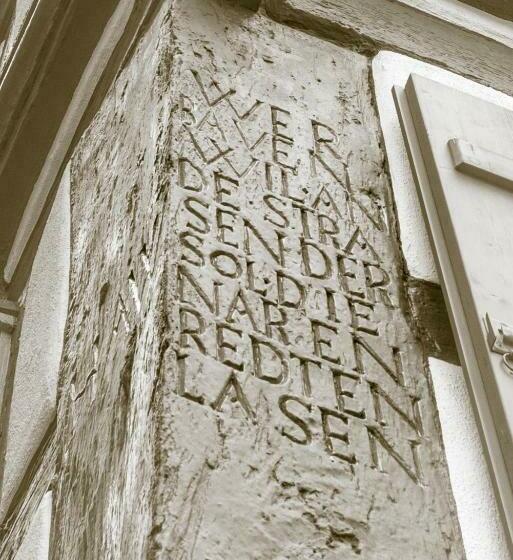 WER
BAVEN
WIL AN
DE STRA
SEN DER
SOL DIE
NAREN
REDTEN
LASEN